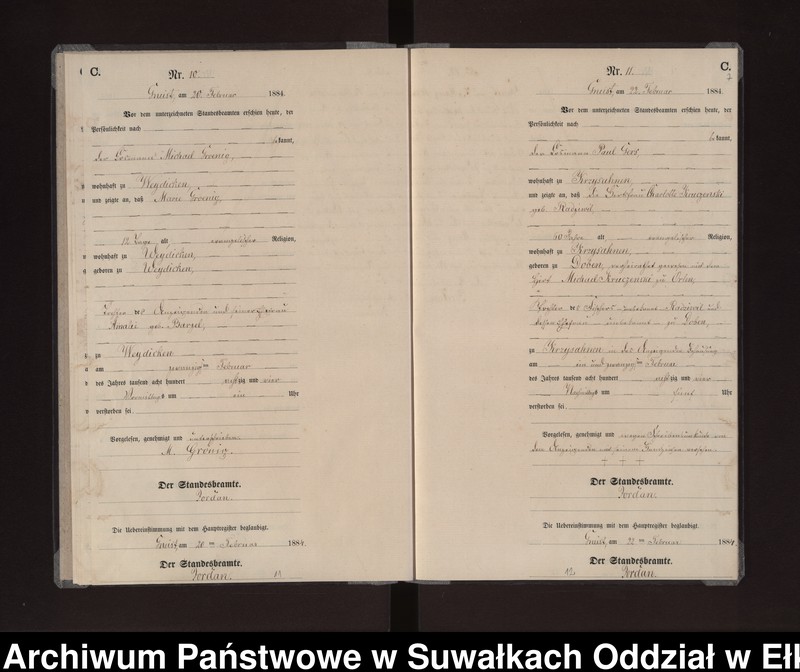 C.
Nr. 10
Gneist, am 20 Februar 1884.
Vor dem unterzeichneten Standesbeamten erschien heute, der
Persönlichkeit nach
kannt,
der Losmann Michael Groenig,
wohnhaft zu Weydicken,
und zeigte an, daß Marie Groenig,
12 Tage alt evangelischer Religion,
wohnhaft zu Weydicken,
geboren zu Weydicken,
Tochter des Anzeigenden und seiner Ehefrau
Amalie geb.
zu Weydicken
am zwanzigten Februar
des Jahres tausend acht hundert achtzig und vier
Vormittags um ein Uhr
verstorben sei
Vorgelesen, genehmigt und unterschrieben
M. Grönig.
Der Standesbeamte.
Jordan.
Die Uebereinstimmung mit dem Hauptregister beglaubigt.
Gneist, am 20ten Februar 1884.
Der Standesbeamte.
Jordan.
11
C.
7
Nr. 11
Gneist, am 22. Februar 1884.
Vor dem unterzeichneten Standesbeamten erschien heute, der
Persönlichkeit nach
bekannt,
der Losmann Paul Gers,
wohnhaft zu Krzysahnen,
und zeigte an, daß die Charlotte
geb. Radziwil,
60 Jahre alt evangelischer Religion,
wohnhaft zu Krzysahnen,
geboren zu Doben, verheirathet gewesen mit dem
Michael zu Orlen,
Tochter des Radziwil und
dessen Ehefrau unbekannt zu Doben,
zu Krzysahnen in des Anzeigenden Behausung
am ein und zwanzigten Februar
des Jahres tausend acht hundert achtzig und vier
Nachmittags um fünf Uhr
verstorben sei
Vorgelesen, genehmigt und wegen
dem Anzeigenden mit seinem Handzeichen versehen.
+ + +
Der Standesbeamte.
Jordan.
Die Uebereinstimmung mit dem Hauptregister beglaubigt.
Gneist, am 22ten Februar 1884
Der Standesbeamte.
Jordan.
12
Archiwum Państwowe w Suwałkach Oddział w Ełk